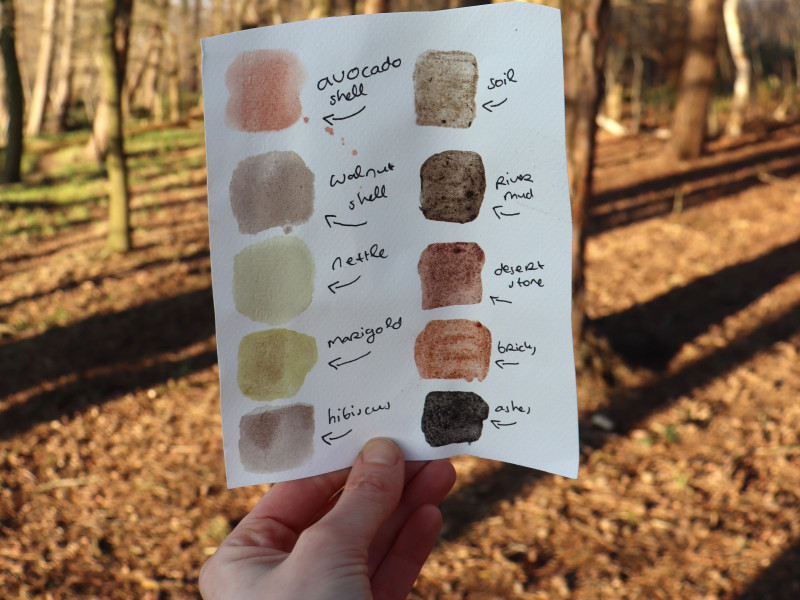 avocado
shell
walnut
shell
nettle
marigold
hibiscus
soil
River
mud
desert
stone
brick,
ashe,